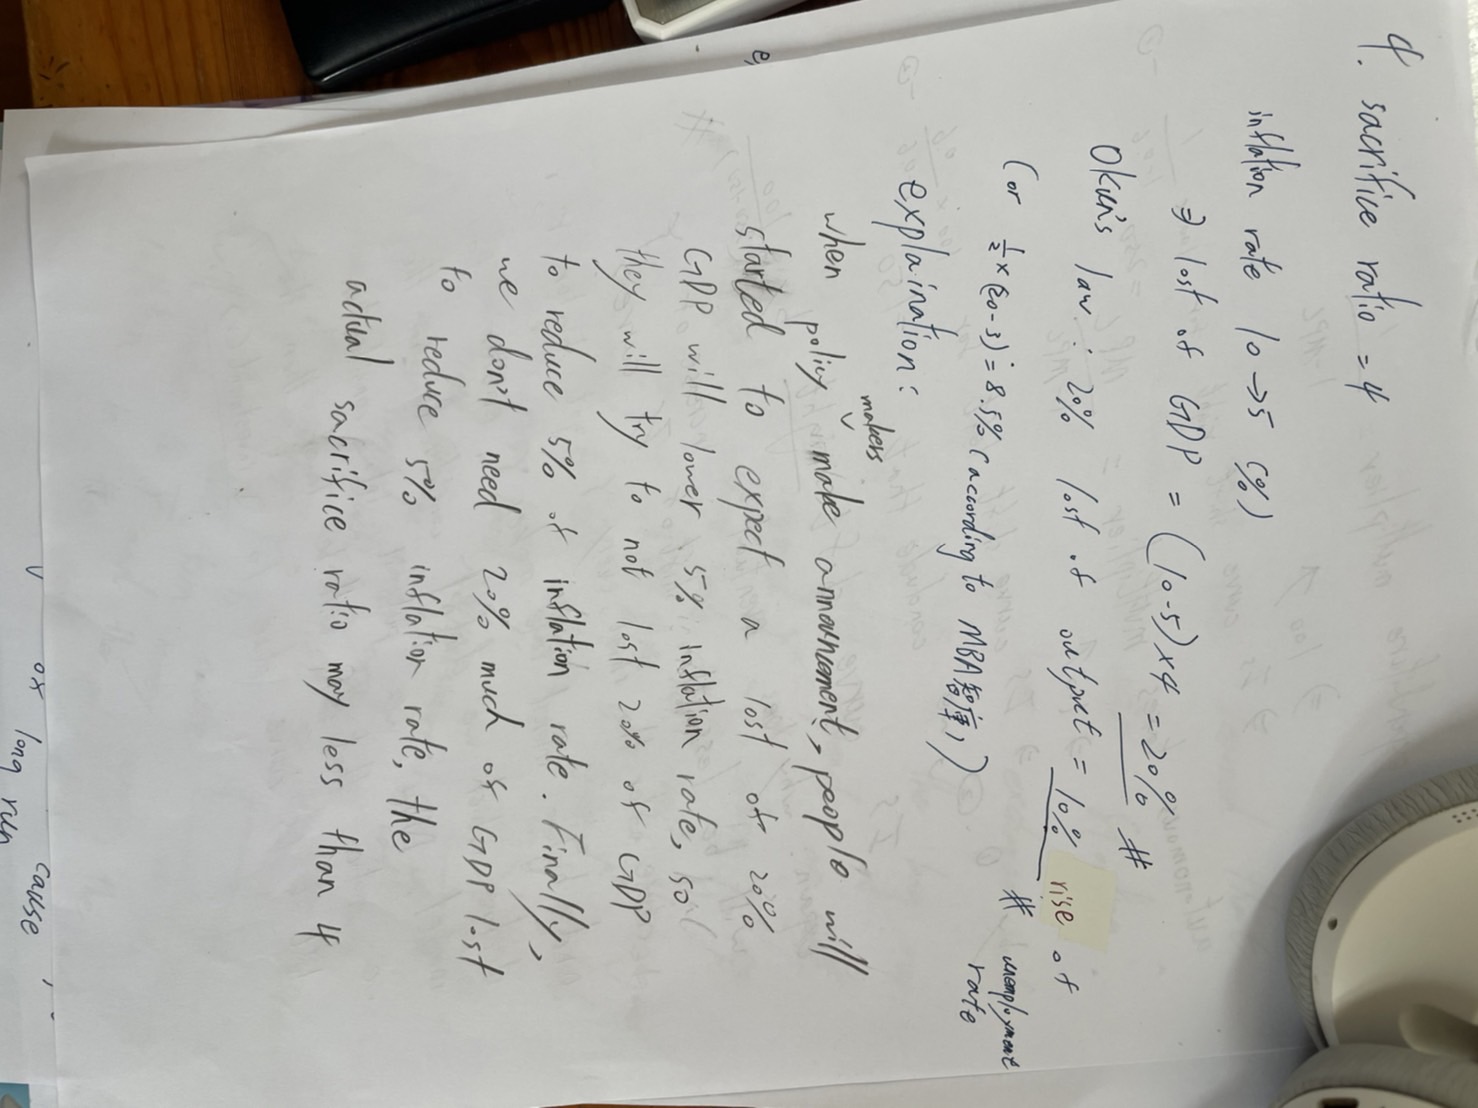 4. sacrifice ratio = 4
inflation rate 10 → 5 (%)
⇒ lost of GDP = (10-5)×4 = 20% #
Okun's law : 20% lost of output = 10% rise of unemployment rate #
(or ½×(20-3) = 8.5% (according to MBA智庫,)
explaination:
when policy makers make announcement, people will
started to expect a lost of 20%
GDP will lower 5% inflation rate, so
they will try to not lost 20% of GDP
to reduce 5% of inflation rate. Finally,
we don't need 20% much of GDP lost
to reduce 5% inflation rate, the
actual sacrifice ratio may less than 4
cause
long run